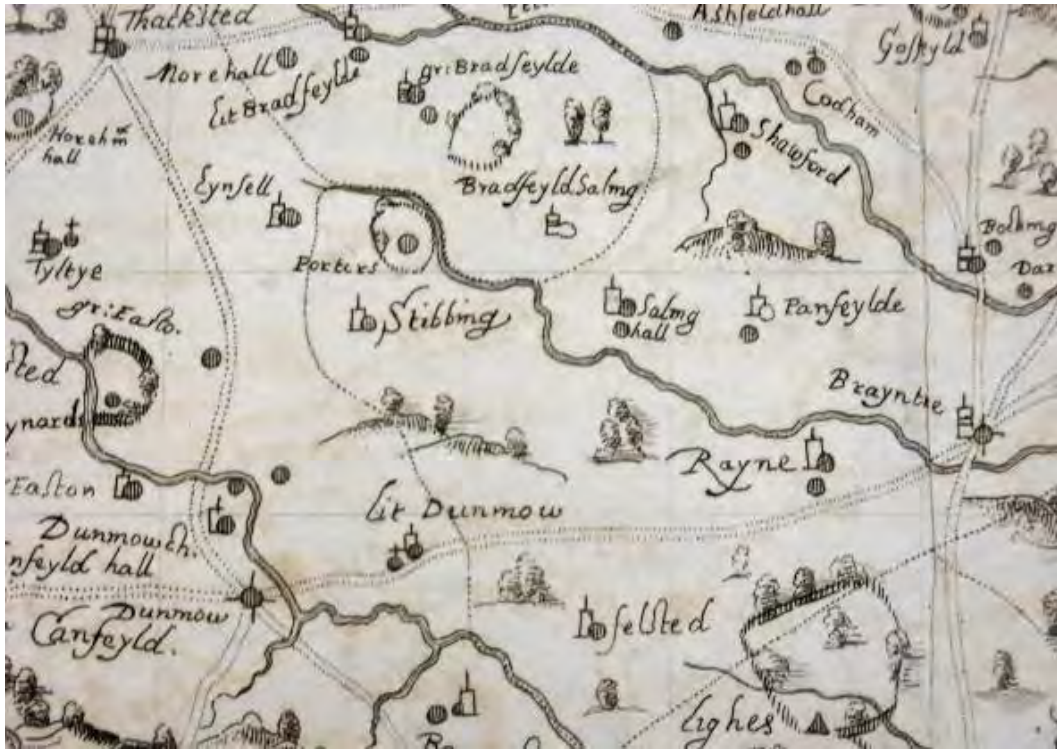 Thacksted
Ashfeldhall
Gosfeyld
Morehall
Lit Bradfeylde
gr: Bradfeylde
Codham
Horehm
hall
Shawford
Eynsell
Bradfeyld Salmg
Bockmg
Tyltye
Porters
Dar
gr: Easto.
Stibbmg
Salmg
hall
Panfeylde
sted
ynards
Brayntre
Rayne
Easton
Lit Dunmow
Dunmow ch.
nfeyld hall
Dunmow
Canfeyld.
felsted
Lighes